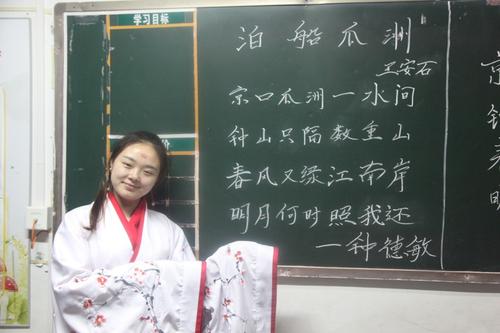 学习目标
泊船瓜洲
王安石
京口瓜洲一水间
钟山只隔数重山
春风又绿江南岸
明月何时照我还
一种德敏
京
钟
春
明